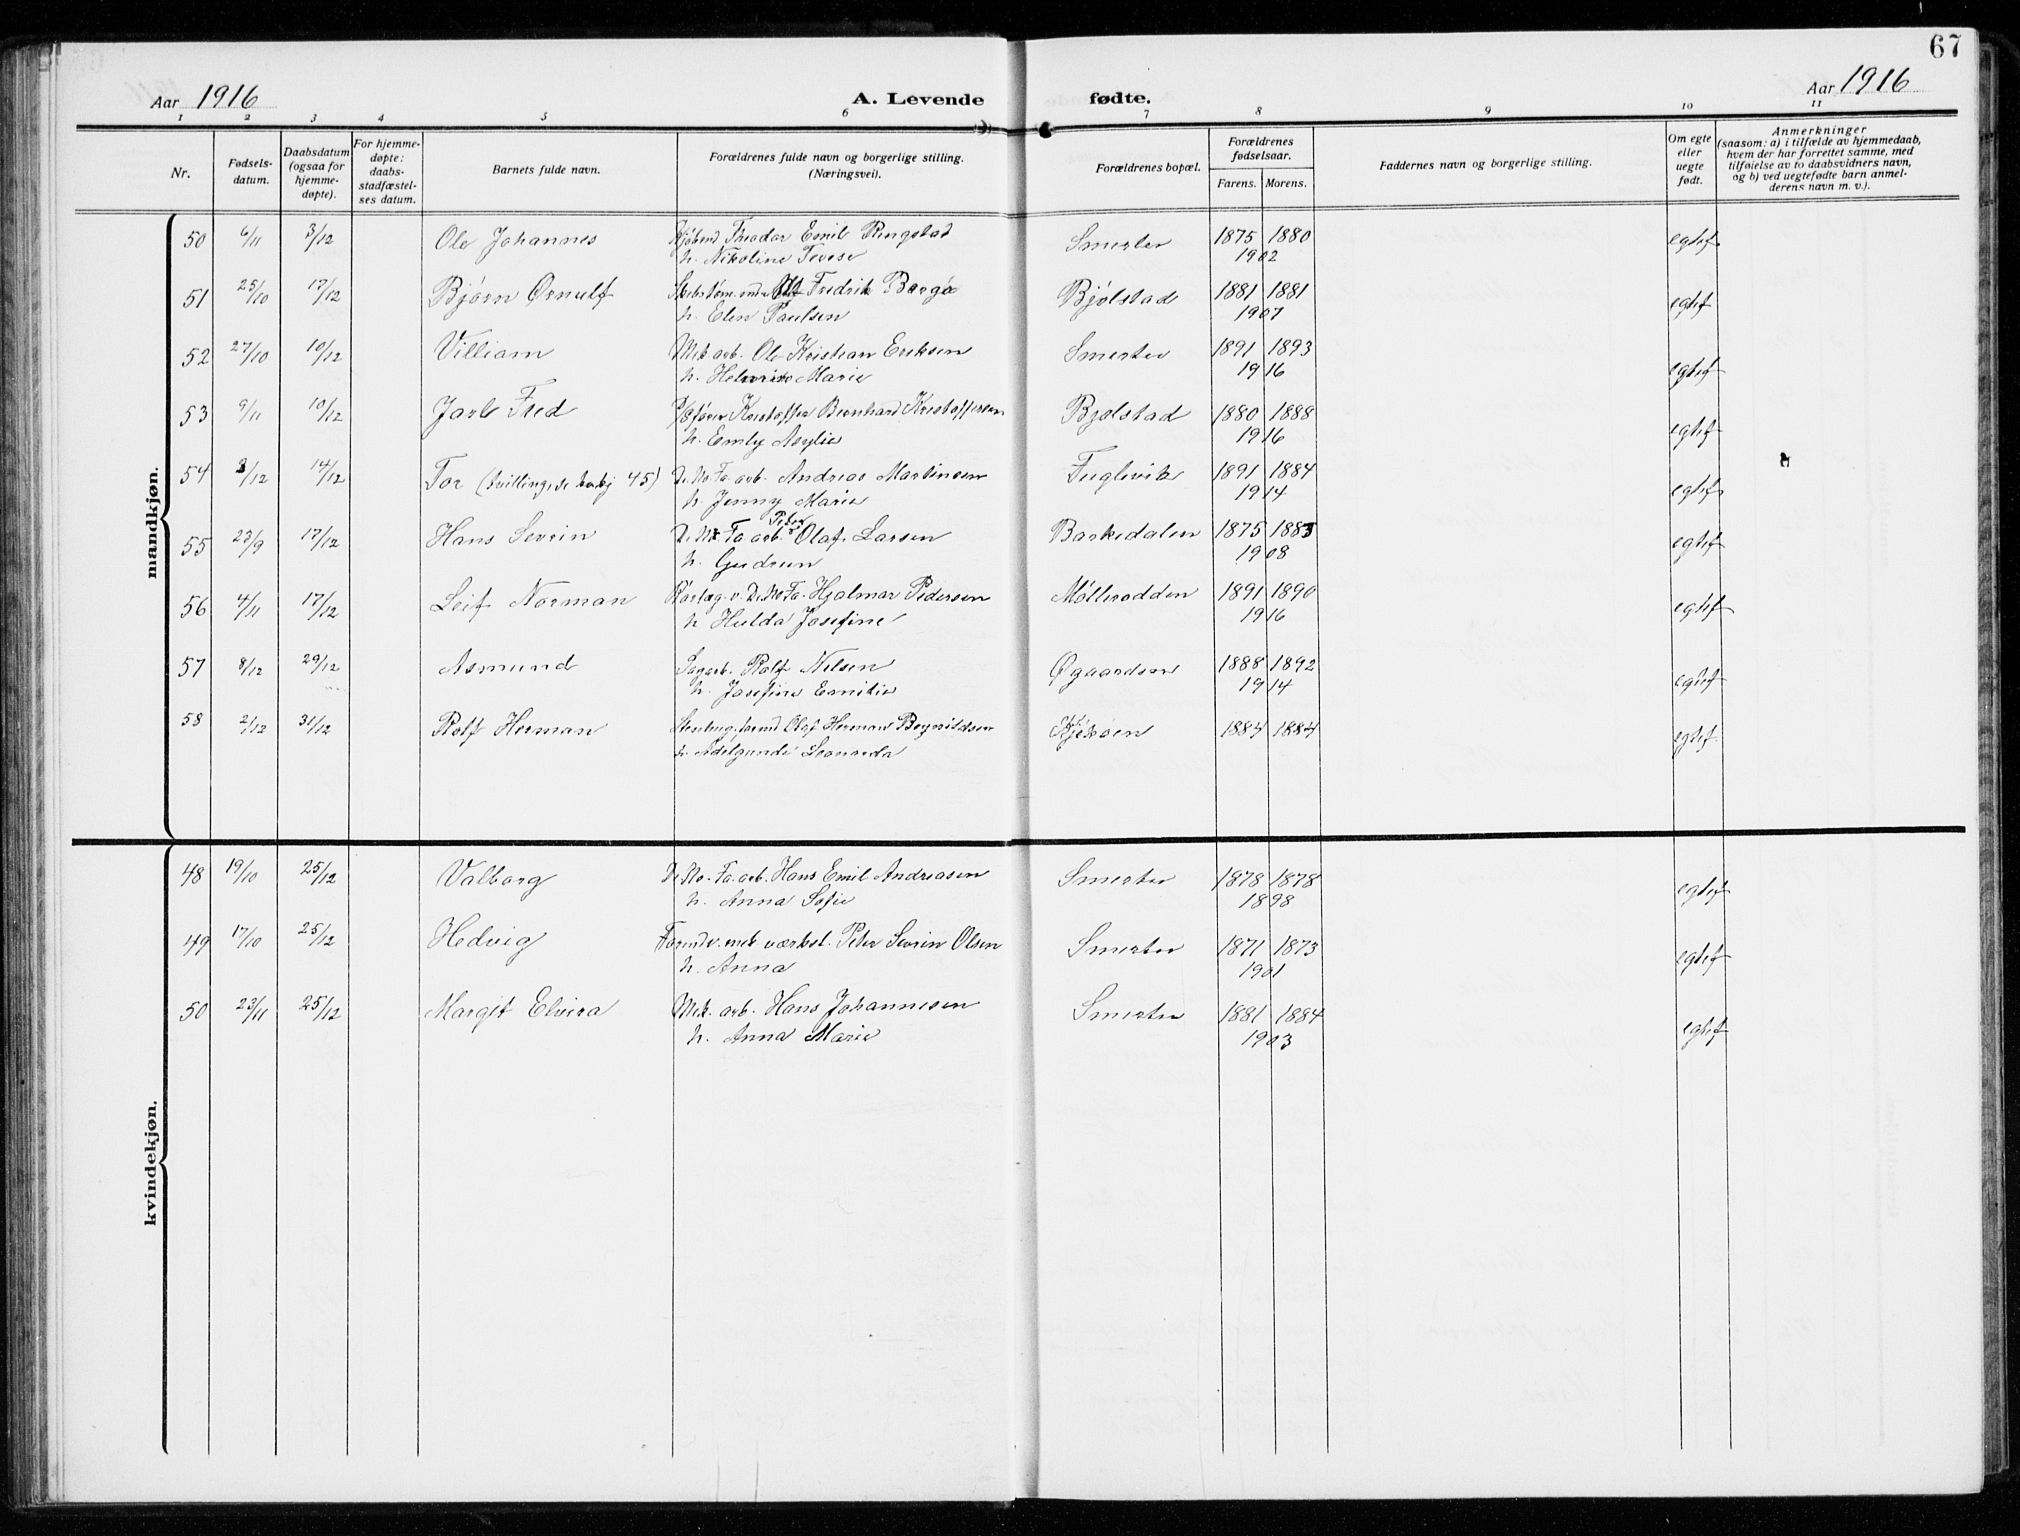 67
Aar 1916
A. Levende fødte.
Aar 1916
1 2 3 4 5 6 7 8 9 10 11
Nr.
Fødsels-
datum.
Daabsdatum
(ogsaa for
hjemme-
døpte).
For hjemme-
døpte:
daabs-
stadfæstel-
ses datum.
Barnets fulde navn.
Forældrenes fulde navn og borgerlige stilling.
(Næringsvei).
Forældrenes bopæl.
Forældrenes
fødselsaar.
Farens. Morens.
Faddernes navn og borgerlige stilling.
Om egte
eller
uegte
født.
Anmerkninger
(saasom: a) i tilfælde av hjemmedaab,
hvem der har forrettet samme, med
tilføielse av to daabsvidners navn,
og b) ved uegtefødte barn anmel-
derens navn m. v.).
mandkjøn.
50 6/11 3/12 Ole Johannes Kjøbmd Theodor Emil Ringstad Smertu 1875 1880 egtef
h. Nikoline Tevese 1902
51 25/10 17/12 Bjørn Ørnulf Fredrik Borgø Bjølstad 1881 1881 egtef
h. Elen Paulsen 1907
52 27/10 10/12 Villiam Mek arb. Ole Kristian Eriksen Smertu 1891 1893 egtef
h. Marie 1916
53 9/11 10/12 Jarl Fred Kristoffer Bernhard Kristoffersen Bjølstad 1880 1888 egtef
h. Emly 1916
54 3/12 14/12 Tor (tvilling, se 45) De No. Fa. arb. Andreas Martinsen Fuglevik 1891 1884 egtef
h. Jenny Marie 1914
55 23/9 17/12 Hans Sevrin De No Fa arb. Peder Olaf Larsen Barkedalen 1875 1883 egtef
h. Gudrun 1908
56 4/11 17/12 Leif Norman Rørlæg. v. De No Fa. Hjalmar Pedersen Mølleodden 1891 1890 egtef
h Hulda Josefine 1916
57 8/12 29/12 Asmund Sagarb. Rolf Nilsen Øgaardsen 1888 1892 egtef
h. Josefine Emilie 1914
58 2/12 31/12 Rolf Herman Olaf Herman Kjøkøen 1884 1884 egtef.
h. Adelgunde Leonarda
kvindekjøn.
48 19/10 25/12 Valborg De No. Fa. arb. Hans Emil Andreasen Smertu 1878 1878 egtef
h. Anna Sofie 1898
49 17/10 25/12 Hedvig Formd v. mek værkst. Peter Sevrin Olsen Smertu 1871 1873 egtef
h. Anna 1901
50 23/11 25/12 Margit Elvira Mek. arb. Hans Johannesen Smertu 1881 1884 egtef
h. Anna Marie 1903